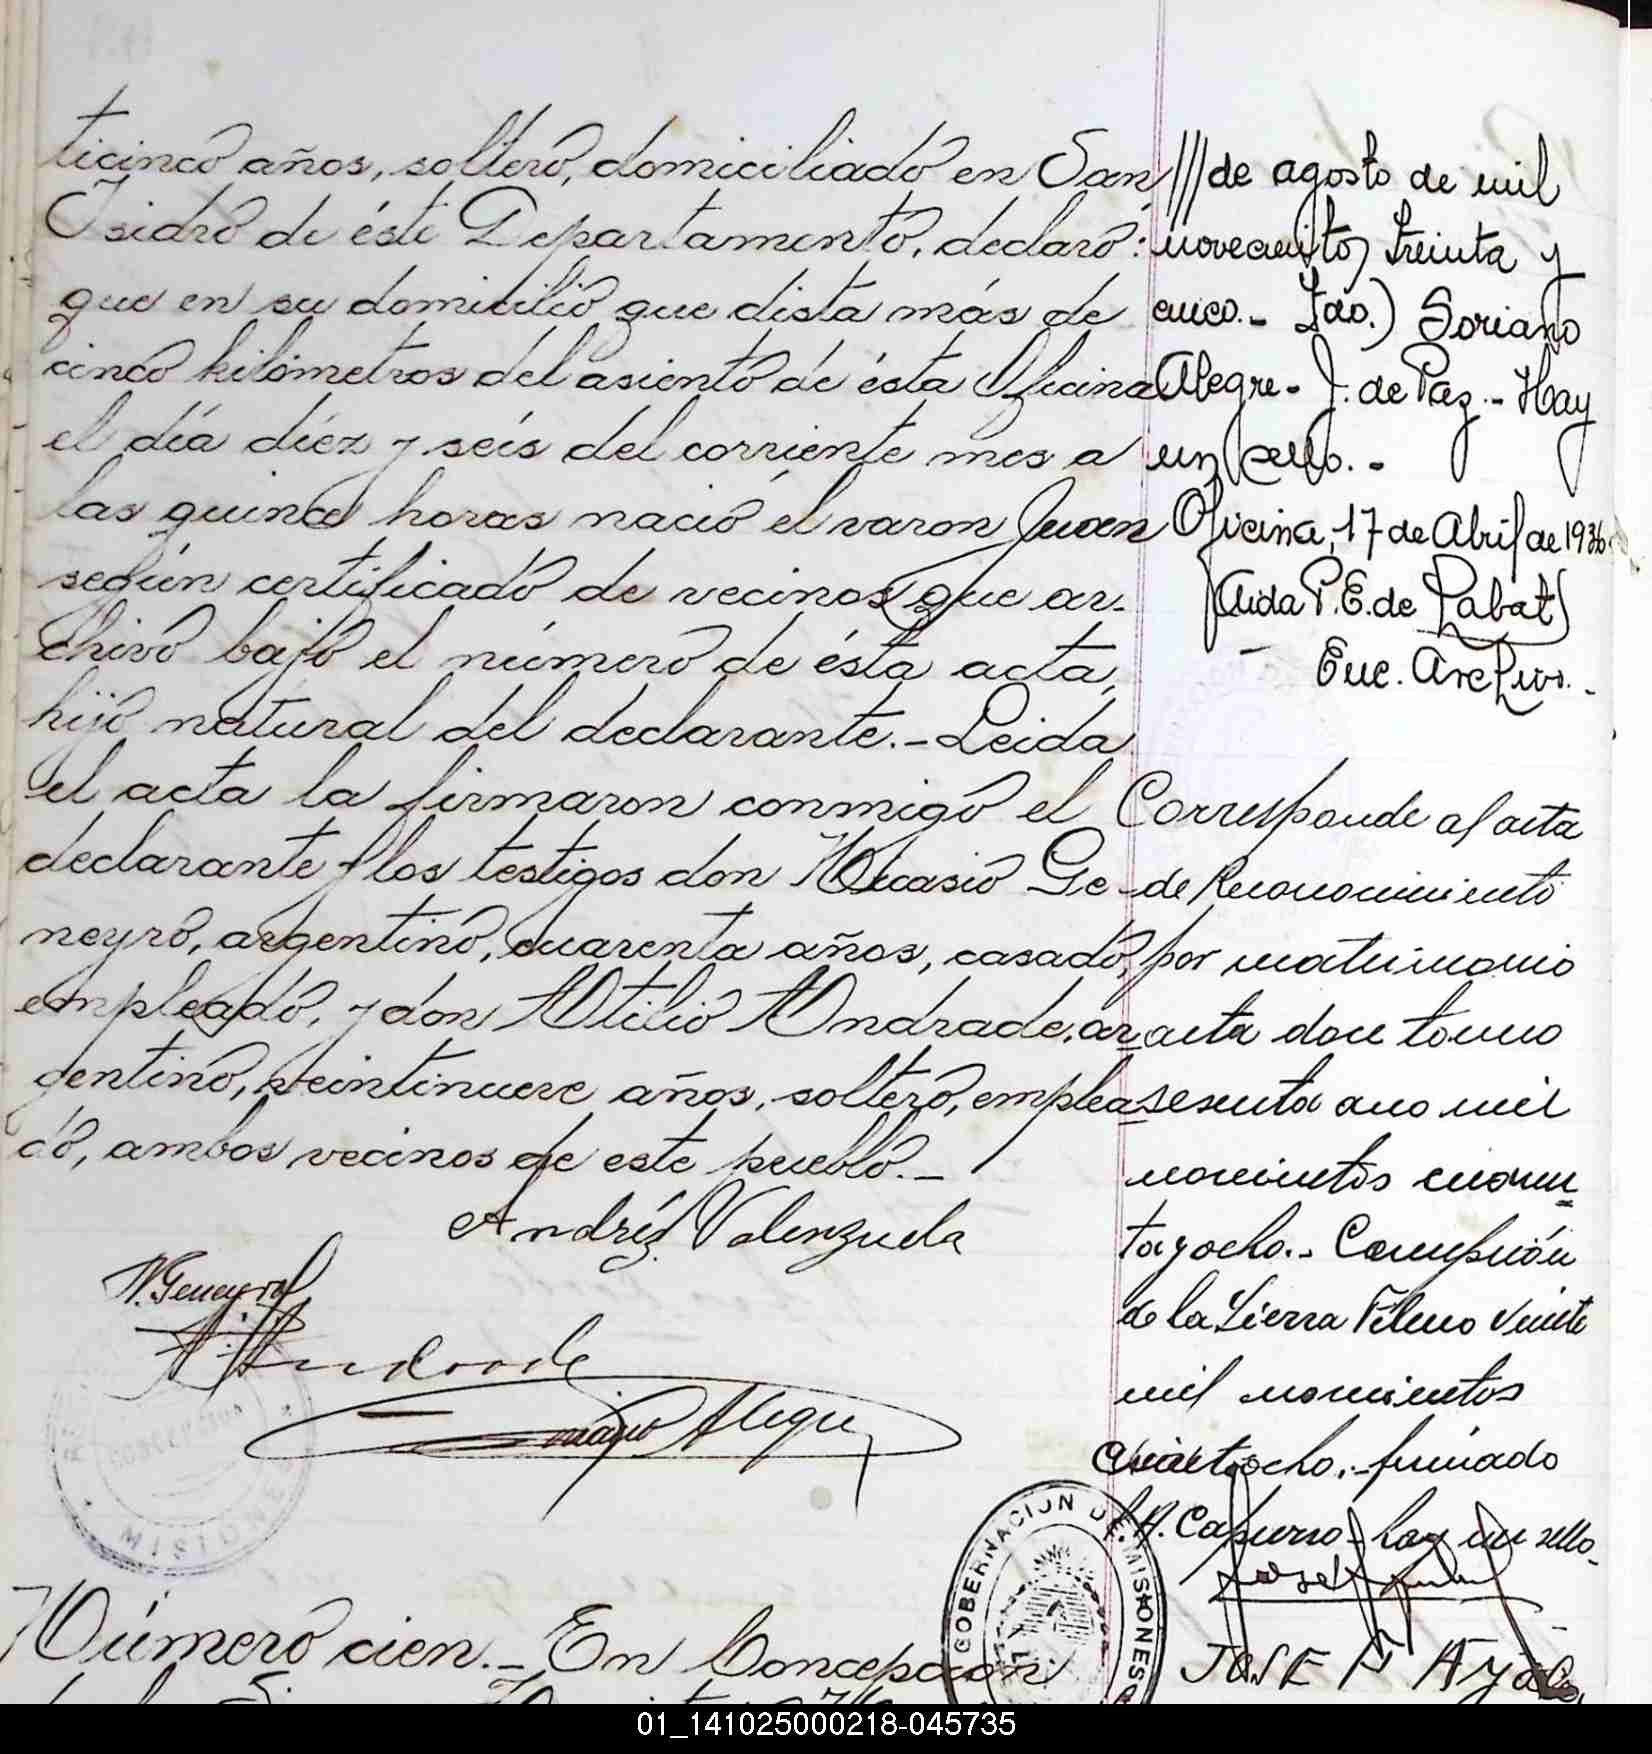 ticinco años, soltero, domiciliado en San
Isidro de éste Departamento, declaró:
que en su domicilio que dista más de
cinco kilómetros del asiento de ésta Oficina
el día diez y seis del corriente mes a
las quince horas nació el varon Juan
según certificado de vecinos que ar-
chivo bajo el número de ésta acta,
hijo natural del declarante.- Leida
el acta la firmaron conmigo el
declarante y los testigos don Nicasio Ge-
neyro, argentino, cuarenta años, casado,
empleado, y don Atilio Andrade, ar
gentino, veintinueve años, soltero, emplea
do, ambos vecinos de este pueblo.-
Andrés Valenzuela
N. Geneyro
A. Andrade
Soriano Alegre
CONCEPCION
MISIONES
Número cien.- En Concepcion
/// de agosto de mil
novecientos treinta y
cinco.- Fdo.) Soriano
Alegre- J. de Paz.- Hay
un sello.-
Oficina, 17 de Abril de 1936
(Aida P. E. de Labat)
Enc. Archivo.-
Corresponde al acta
de Reconocimiento
por matrimonio
acta doce tomo
sesenta ano mil
novecientos cuaren
ta y ocho.- Concepción
de la Sierra Febrero veinte
mil novecientos
cuarentiocho.- firmado
A. Capurro- hay un sello-
GOBERNACION DE MISIONES
JOSE F AYALA
01_141025000218-045735